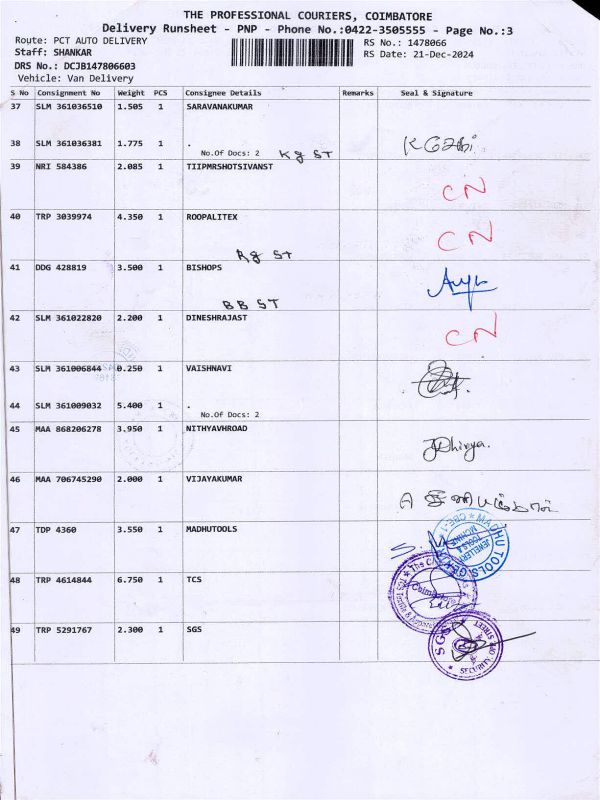 THE PROFESSIONAL COURIERS, COIMBATORE
Delivery Runsheet - PNP - Phone No.:0422-3505555 - Page No.:3
Route: PCT AUTO DELIVERY RS No.: 1478066
Staff: SHANKAR RS Date: 21-Dec-2024
DRS No.: DCJB147806603
Vehicle: Van Delivery
S No Consignment No Weight PCS Consignee Details Remarks Seal & Signature
37 SLM 361036510 1.505 1 SARAVANAKUMAR
38 SLM 361036381 1.775 1 .
No.Of Docs: 2 Kg ST
39 NRI 584386 2.085 1 TIIPMRSHOTSIVANST
CN
40 TRP 3039974 4.350 1 ROOPALITEX
CN
Rg ST
41 DDG 428819 3.500 1 BISHOPS
BB ST
42 SLM 361022820 2.200 1 DINESHRAJAST
CN
43 SLM 361006844 0.250 1 VAISHNAVI
44 SLM 361009032 5.400 1 .
No.Of Docs: 2
45 MAA 868206278 3.950 1 NITHYAVHROAD
JDhivya.
46 MAA 706745290 2.000 1 VIJAYAKUMAR
47 TDP 4360 3.550 1 MADHUTOOLS
MADHU TOOLS
JEWELLERY TOOLS &
48 TRP 4614844 6.750 1 TCS
49 TRP 5291767 2.300 1 SGS
SGS
STREET
SECURITY